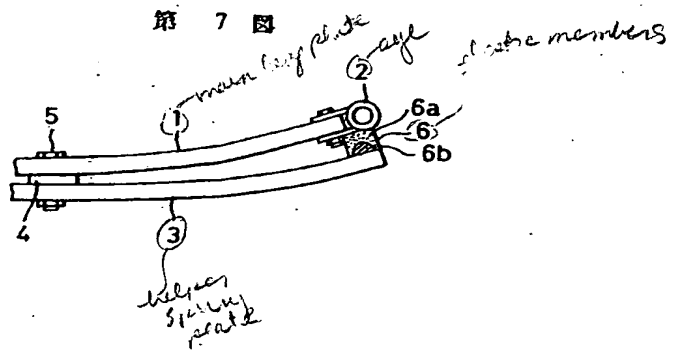 第 7 図
main leaf plate
eye
elastic members
5
1
2
6a
6
6b
4
3
helper
spring
plate